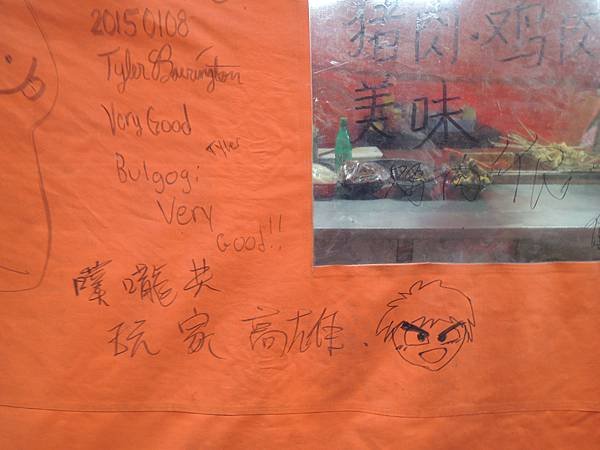 20150108
Tyler
Very Good
Tyler
Bulgogi
Very
Good!!
猪肉·鸡肉
美味
噗嚨共
玩家高雄.